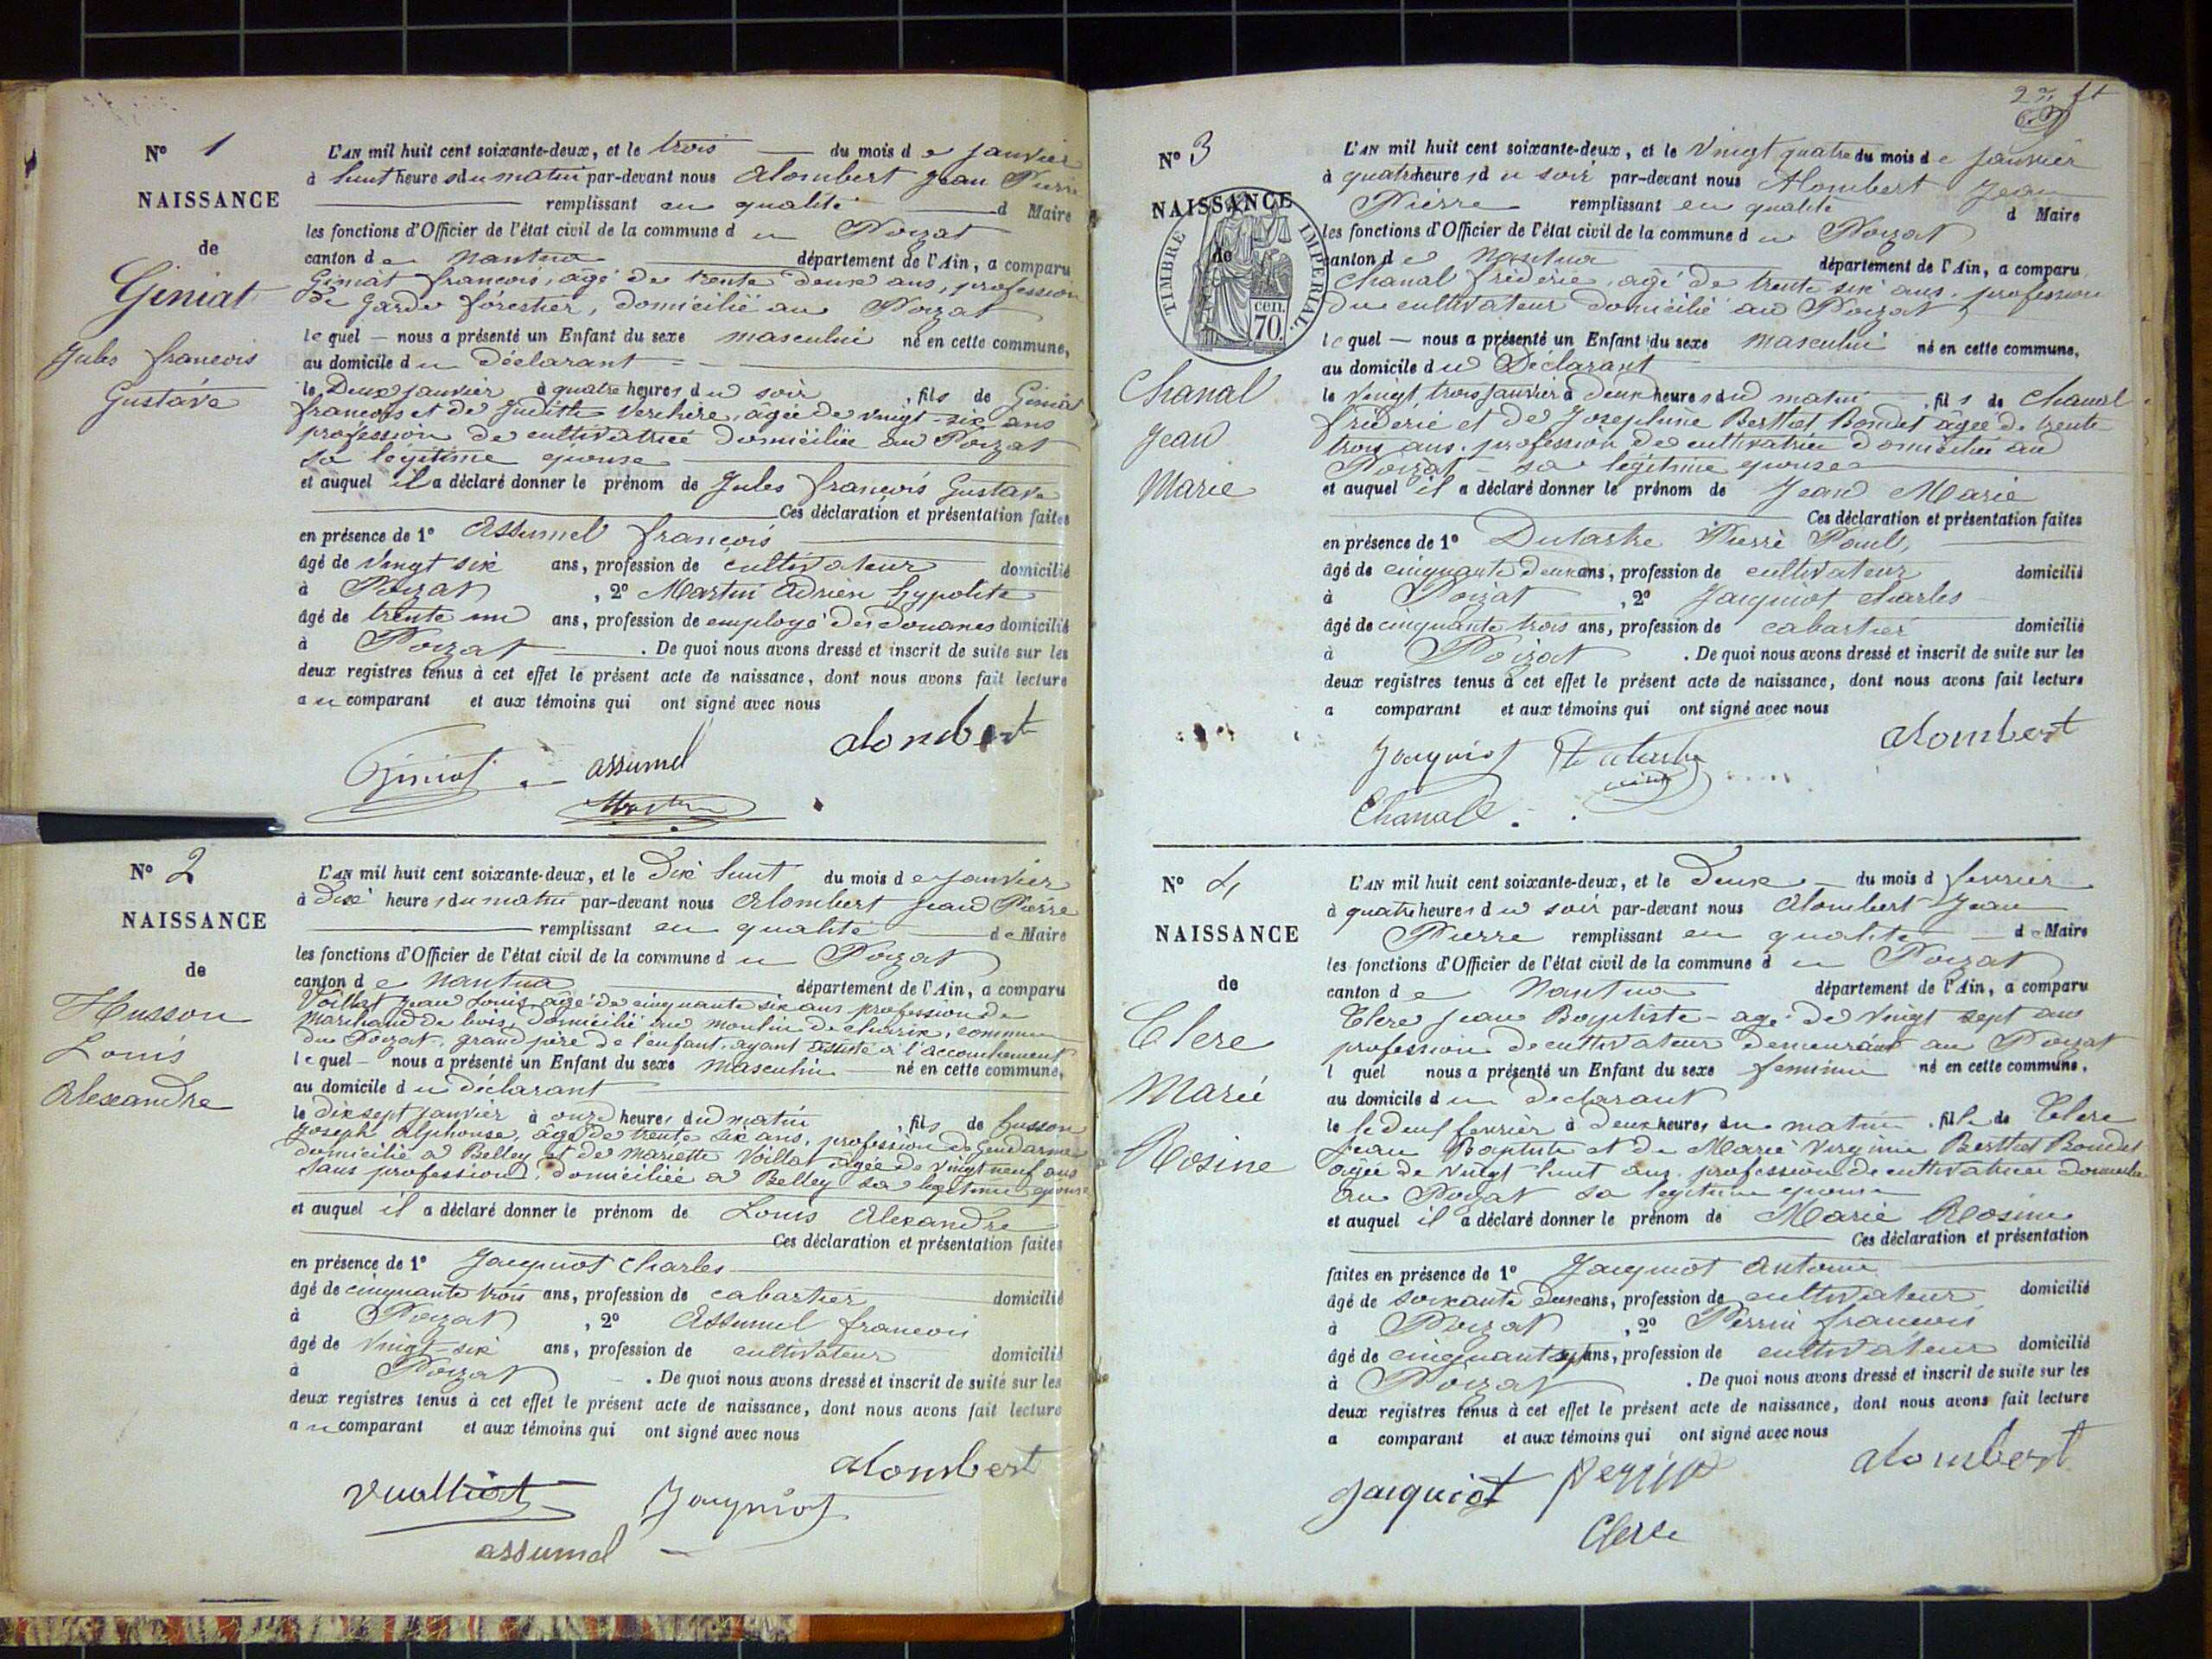 N° 1
NAISSANCE
de
Géniat
Jules francois
Gustave
L'AN mil huit cent soixante-deux, et le trois du mois de janvier
à huit heures du matin par-devant nous Alombert Jean Pierre
remplissant en qualité d Maire
les fonctions d'Officier de l'état civil de la commune du Poizat
canton de Nantua département de l'Ain, a comparu
Géniat francois, agé de trente deux ans, profession
de Garde forestier, domicilié au Poizat
lequel nous a présenté un Enfant du sexe masculin né en cette commune,
au domicile du déclarant
le Deux janvier à quatre heures du soir, fils de Géniat
francois et de Judith Verchère, âgée de vingt-six ans
profession de cultivatrice domiciliée au Poizat
sa legitime epouse
et auquel il a déclaré donner le prénom de Jules francois Gustave
Ces déclaration et présentation faites
en présence de 1° Assumel francois
âgé de vingt six ans, profession de cultivateur domicilié
à Poizat, 2° Martin Adrien hypolite
âgé de trente un ans, profession de employé des douanes domicilié
à Poizat. De quoi nous avons dressé et inscrit de suite sur les
deux registres tenus à cet effet le présent acte de naissance, dont nous avons fait lecture
au comparant et aux témoins qui ont signé avec nous
alombert
Géniat assumel
Martin
N° 2
NAISSANCE
de
Husson
Louis
Alexandre
L'AN mil huit cent soixante-deux, et le Dix huit du mois de janvier
à dix heures du matin par-devant nous Alombert Jean Pierre
remplissant en qualité de Maire
les fonctions d'Officier de l'état civil de la commune du Poizat
canton de Nantua département de l'Ain, a comparu
Voillat Jean Louis, agé de cinquante six ans profession de
marchand de bois, domicilié au moulin de charix, commune
du Poizat, grand père de l'enfant, ayant assisté à l'accouchement
lequel nous a présenté un Enfant du sexe masculin né en cette commune,
au domicile du déclarant
le dix sept janvier à onze heures du matin, fils de husson
Joseph Alphonse, âgé de trente six ans, profession de Gendarme
domicilié à Belley et de Mariette Voillat âgée de vingt neuf ans
sans profession, domiciliée à Belley sa legitime epouse
et auquel il a déclaré donner le prénom de Louis Alexandre
Ces déclaration et présentation faites
en présence de 1° Jacquiot charles
âgé de cinquante trois ans, profession de cabartier domicilié
à Poizat, 2° Assumel francois
âgé de vingt-six ans, profession de cultivateur domicilié
à Poizat. De quoi nous avons dressé et inscrit de suite sur les
deux registres tenus à cet effet le présent acte de naissance, dont nous avons fait lecture
au comparant et aux témoins qui ont signé avec nous
alombert
vuailliat Jacquiot
assumel
N° 3
NAISSANCE
de
TIMBRE IMPÉRIAL.
cen.
70.
Chanal
Jean
Marie
L'AN mil huit cent soixante-deux, et le Vingt quatre du mois de janvier
à quatre heures du soir par-devant nous Alombert Jean
Pierre remplissant en qualité d Maire
les fonctions d'Officier de l'état civil de la commune du Poizat
canton de Nantua département de l'Ain, a comparu
Chanal fréderic, agé de trente six ans, profession
du cultivateur domicilié au Poizat
lequel nous a présenté un Enfant du sexe masculin né en cette commune,
au domicile du Déclarant
le Vingt trois janvier à deux heures du matin, fils de Chanal
fréderic et de Josephine Berthet Bondet âgée de trente
trois ans, profession de cultivatrice domiciliée au
Poizat sa légitime epouse
et auquel il a déclaré donner le prénom de Jean Marie
Ces déclaration et présentation faites
en présence de 1° Dutartre Pierre Paul,
âgé de cinquante deux ans, profession de cultivateur domicilié
à Poizat, 2° Jacquiot charles
âgé de cinquante trois ans, profession de cabartier domicilié
à Poizat. De quoi nous avons dressé et inscrit de suite sur les
deux registres tenus à cet effet le présent acte de naissance, dont nous avons fait lecture
a comparant et aux témoins qui ont signé avec nous
alombert
Jacquiot Dutartre
Chanall
N° 4
NAISSANCE
de
Clerc
Marie
Rosine
L'AN mil huit cent soixante-deux, et le Deux du mois d fevrier
à quatre heures du soir par-devant nous Alombert Jean
Pierre remplissant en qualité de Maire
les fonctions d'Officier de l'état civil de la commune du Poizat
canton de Nantua département de l'Ain, a comparu
Clerc Jean Baptiste agé de vingt sept ans
profession de cultivateur demeurant au Poizat
l quel nous a présenté un Enfant du sexe feminin né en cette commune,
au domicile du declarant
le le deux fevrier à deux heures du matin, fille de Clerc
Jean Baptiste et de Marie Virginie Berthet Bondet
agée de vingt huit ans, profession de cultivatrice domiciliée
au Poizat sa legitime epouse
et auquel il a déclaré donner le prénom de Marie Rosine
Ces déclaration et présentation
faites en présence de 1° Jacquiot Antoine
âgé de soixante deux ans, profession de cultivateur domicilié
à Poizat, 2° Perrin francois
âgé de cinquante sept ans, profession de cultivateur domicilié
à Poizat. De quoi nous avons dressé et inscrit de suite sur les
deux registres tenus à cet effet le présent acte de naissance, dont nous avons fait lecture
a comparant et aux témoins qui ont signé avec nous
alombert
Jacquiot perrin
Clerc